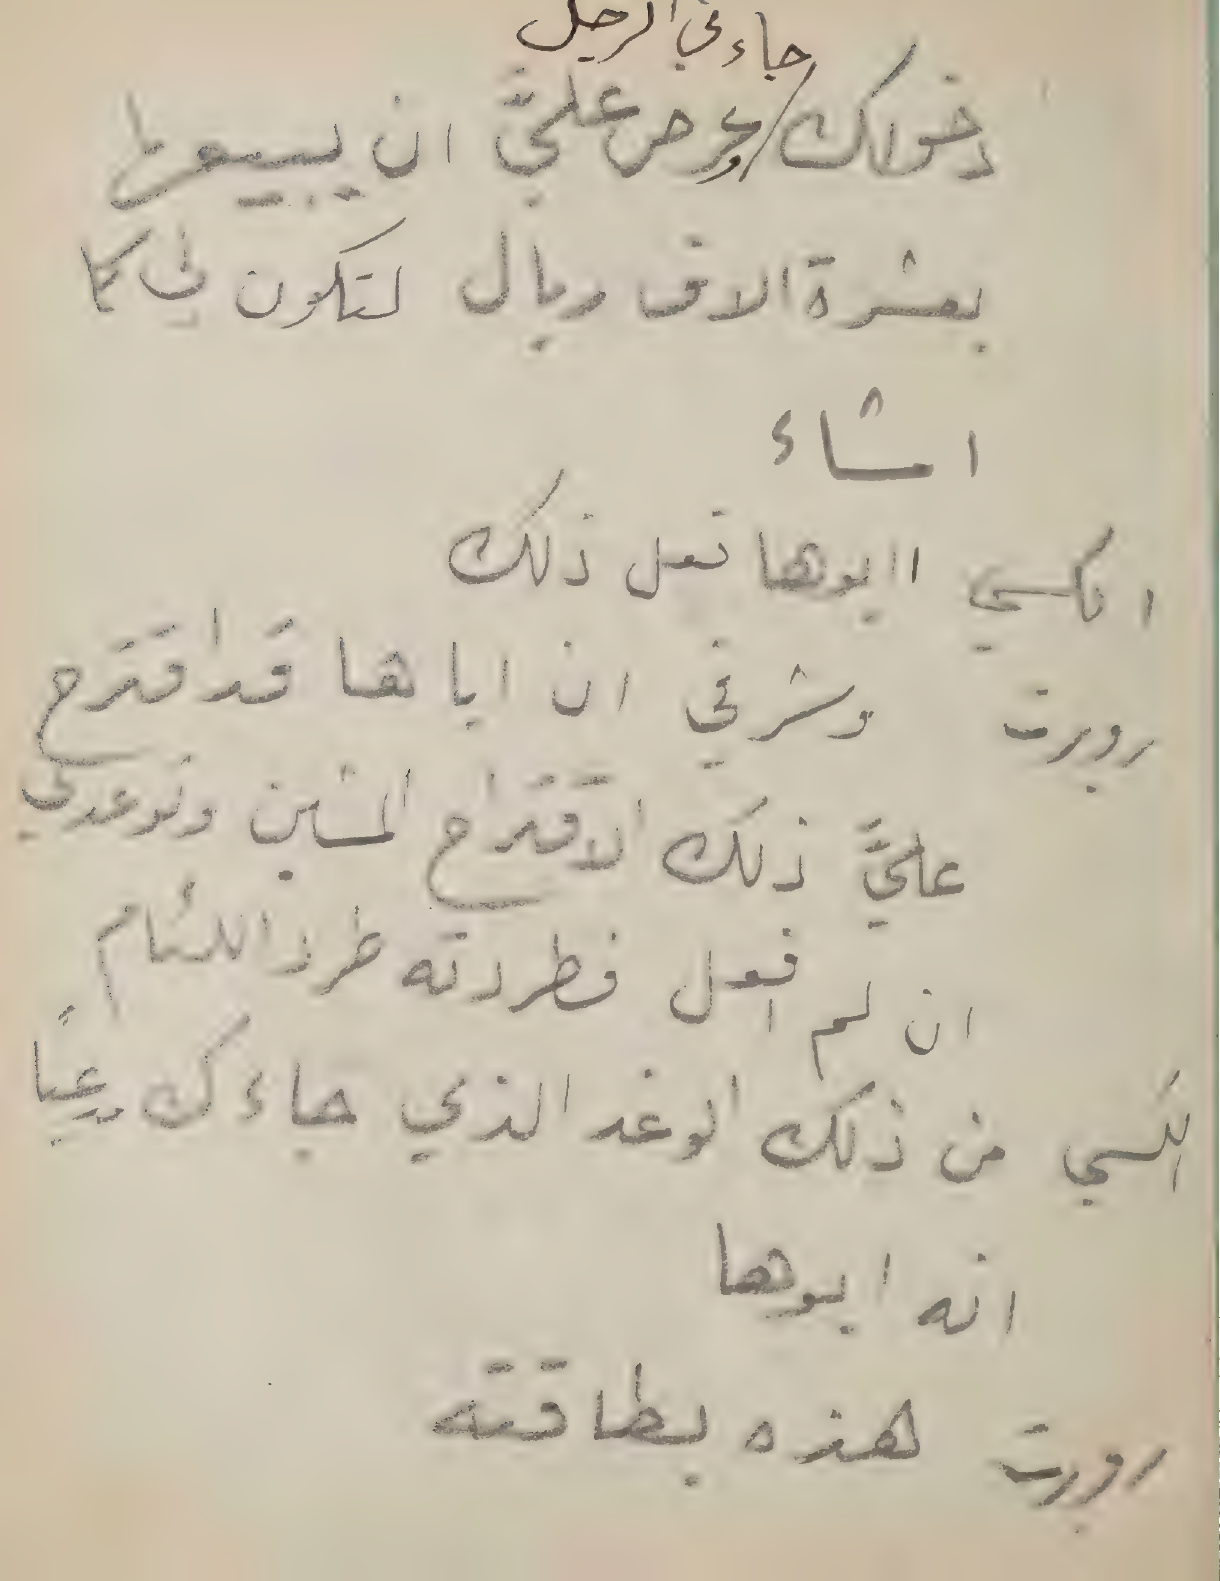 جاءني الرجل
دخولك / وعرض عليَّ ان يبيعها
بعشرة الاف ريال لتكون لي كما
اشاء
الكسي اابوها تعل ذلك
روبرت وشرفي ان اباها قد اقترح
عليَّ ذلك الاقتراح المشين وتوعدني
ان لم افعل فطردته طرد اللئام
الكسي من ذلك الوغد الذي جاءك مدعيًا
انه ابوها
روبرت هذه بطاقته